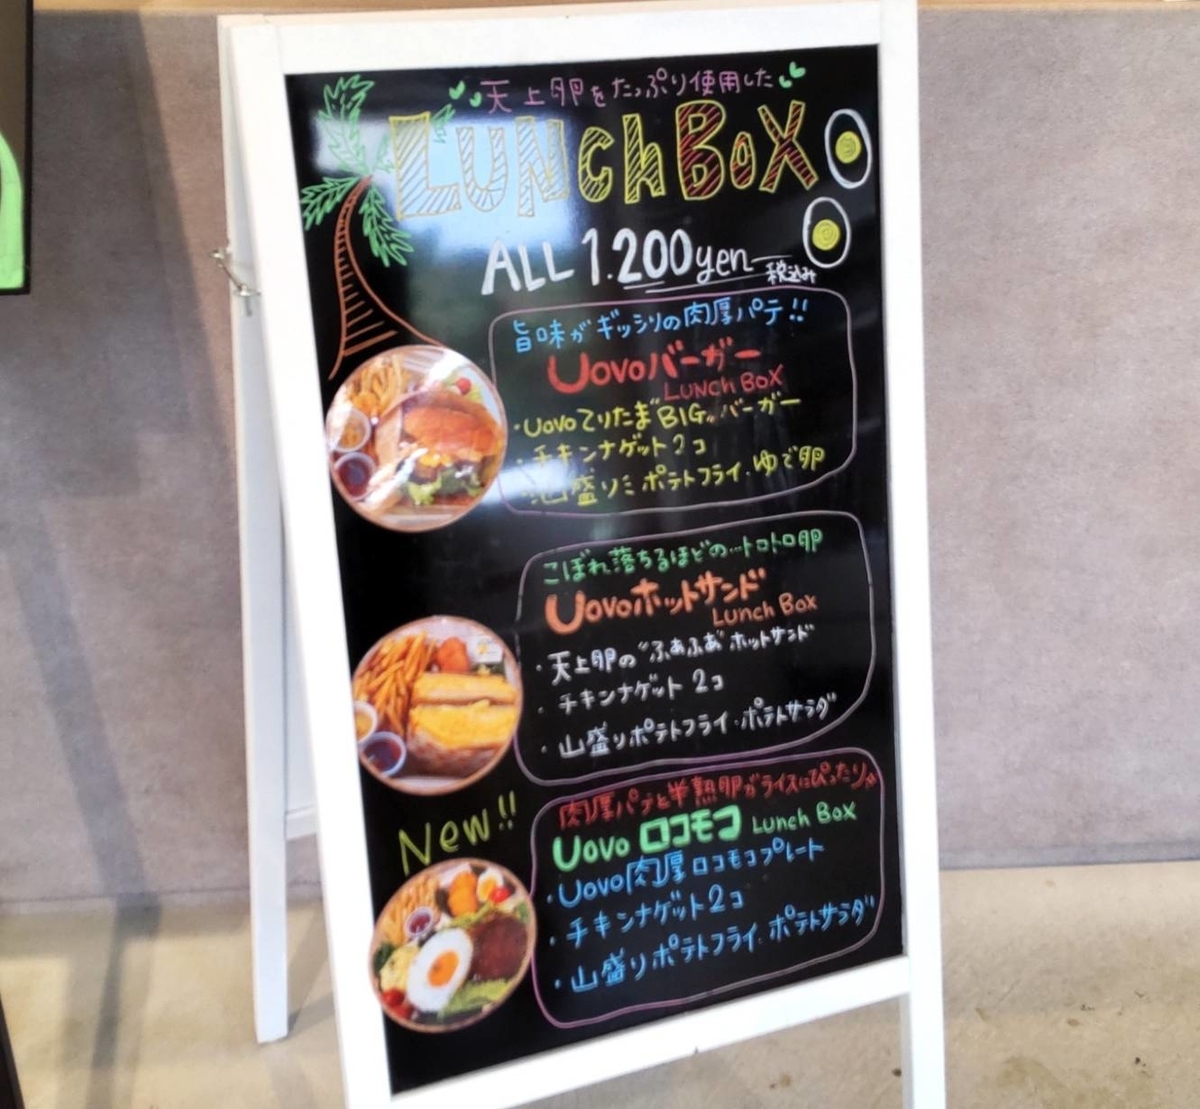 天上卵をたっぷり使用した
LUNchBoX
ALL 1.200yen
税込み
旨味がギッシリの肉厚パテ!!
Uovoバーガー
LUNCH BOX
・Uovoてりたま"BIG"バーガー
・チキンナゲット2コ
・山盛りポテトフライ・ゆで卵
こぼれ落ちるほどの…トロトロ卵
Uovoホットサンド
Lunch Box
・天上卵の"ふあふあ"ホットサンド
・チキンナゲット 2コ
・山盛りポテトフライ・ポテトサラダ
New!!
肉厚パテと半熟卵がライスにぴったり☆
Uovo ロコモコ Lunch Box
・Uovo肉厚ロコモコプレート
・チキンナゲット2コ
・山盛りポテトフライ・ポテトサラダ